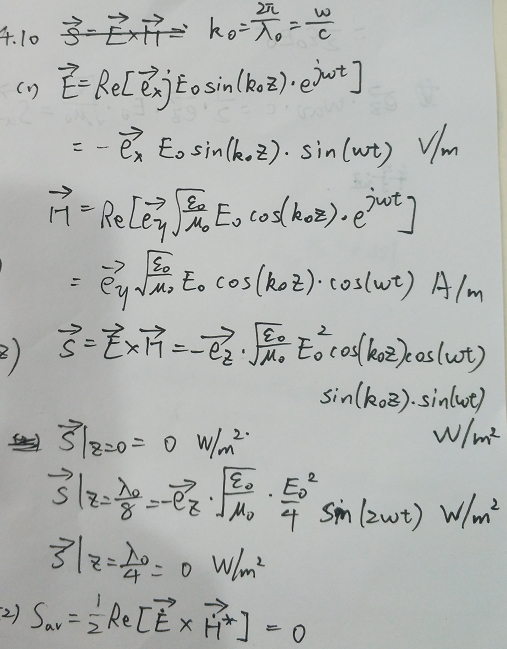 4.10 k₀=2π/λ₀=w/c
(1) E⃗=Re[e⃗ₓjE₀sin(k₀z)·e^jwt]
=-e⃗ₓ E₀sin(k₀z)·sin(wt) V/m
H⃗=Re[e⃗y√(ε₀/μ₀)E₀cos(k₀z)·e^jwt]
=e⃗y√(ε₀/μ₀)E₀cos(k₀z)·cos(wt) A/m
2) S⃗=E⃗×H⃗=-e⃗z·√(ε₀/μ₀)E₀²cos(k₀z)cos(wt)
sin(k₀z)·sin(wt)
W/m²
S⃗|z=0=0 W/m²
S⃗|z=λ₀/8=-e⃗z·√(ε₀/μ₀)·E₀²/4 sin(2wt) W/m²
S⃗|z=λ₀/4=0 W/m²
2) Sav=1/2Re[E⃗×H⃗*]=0